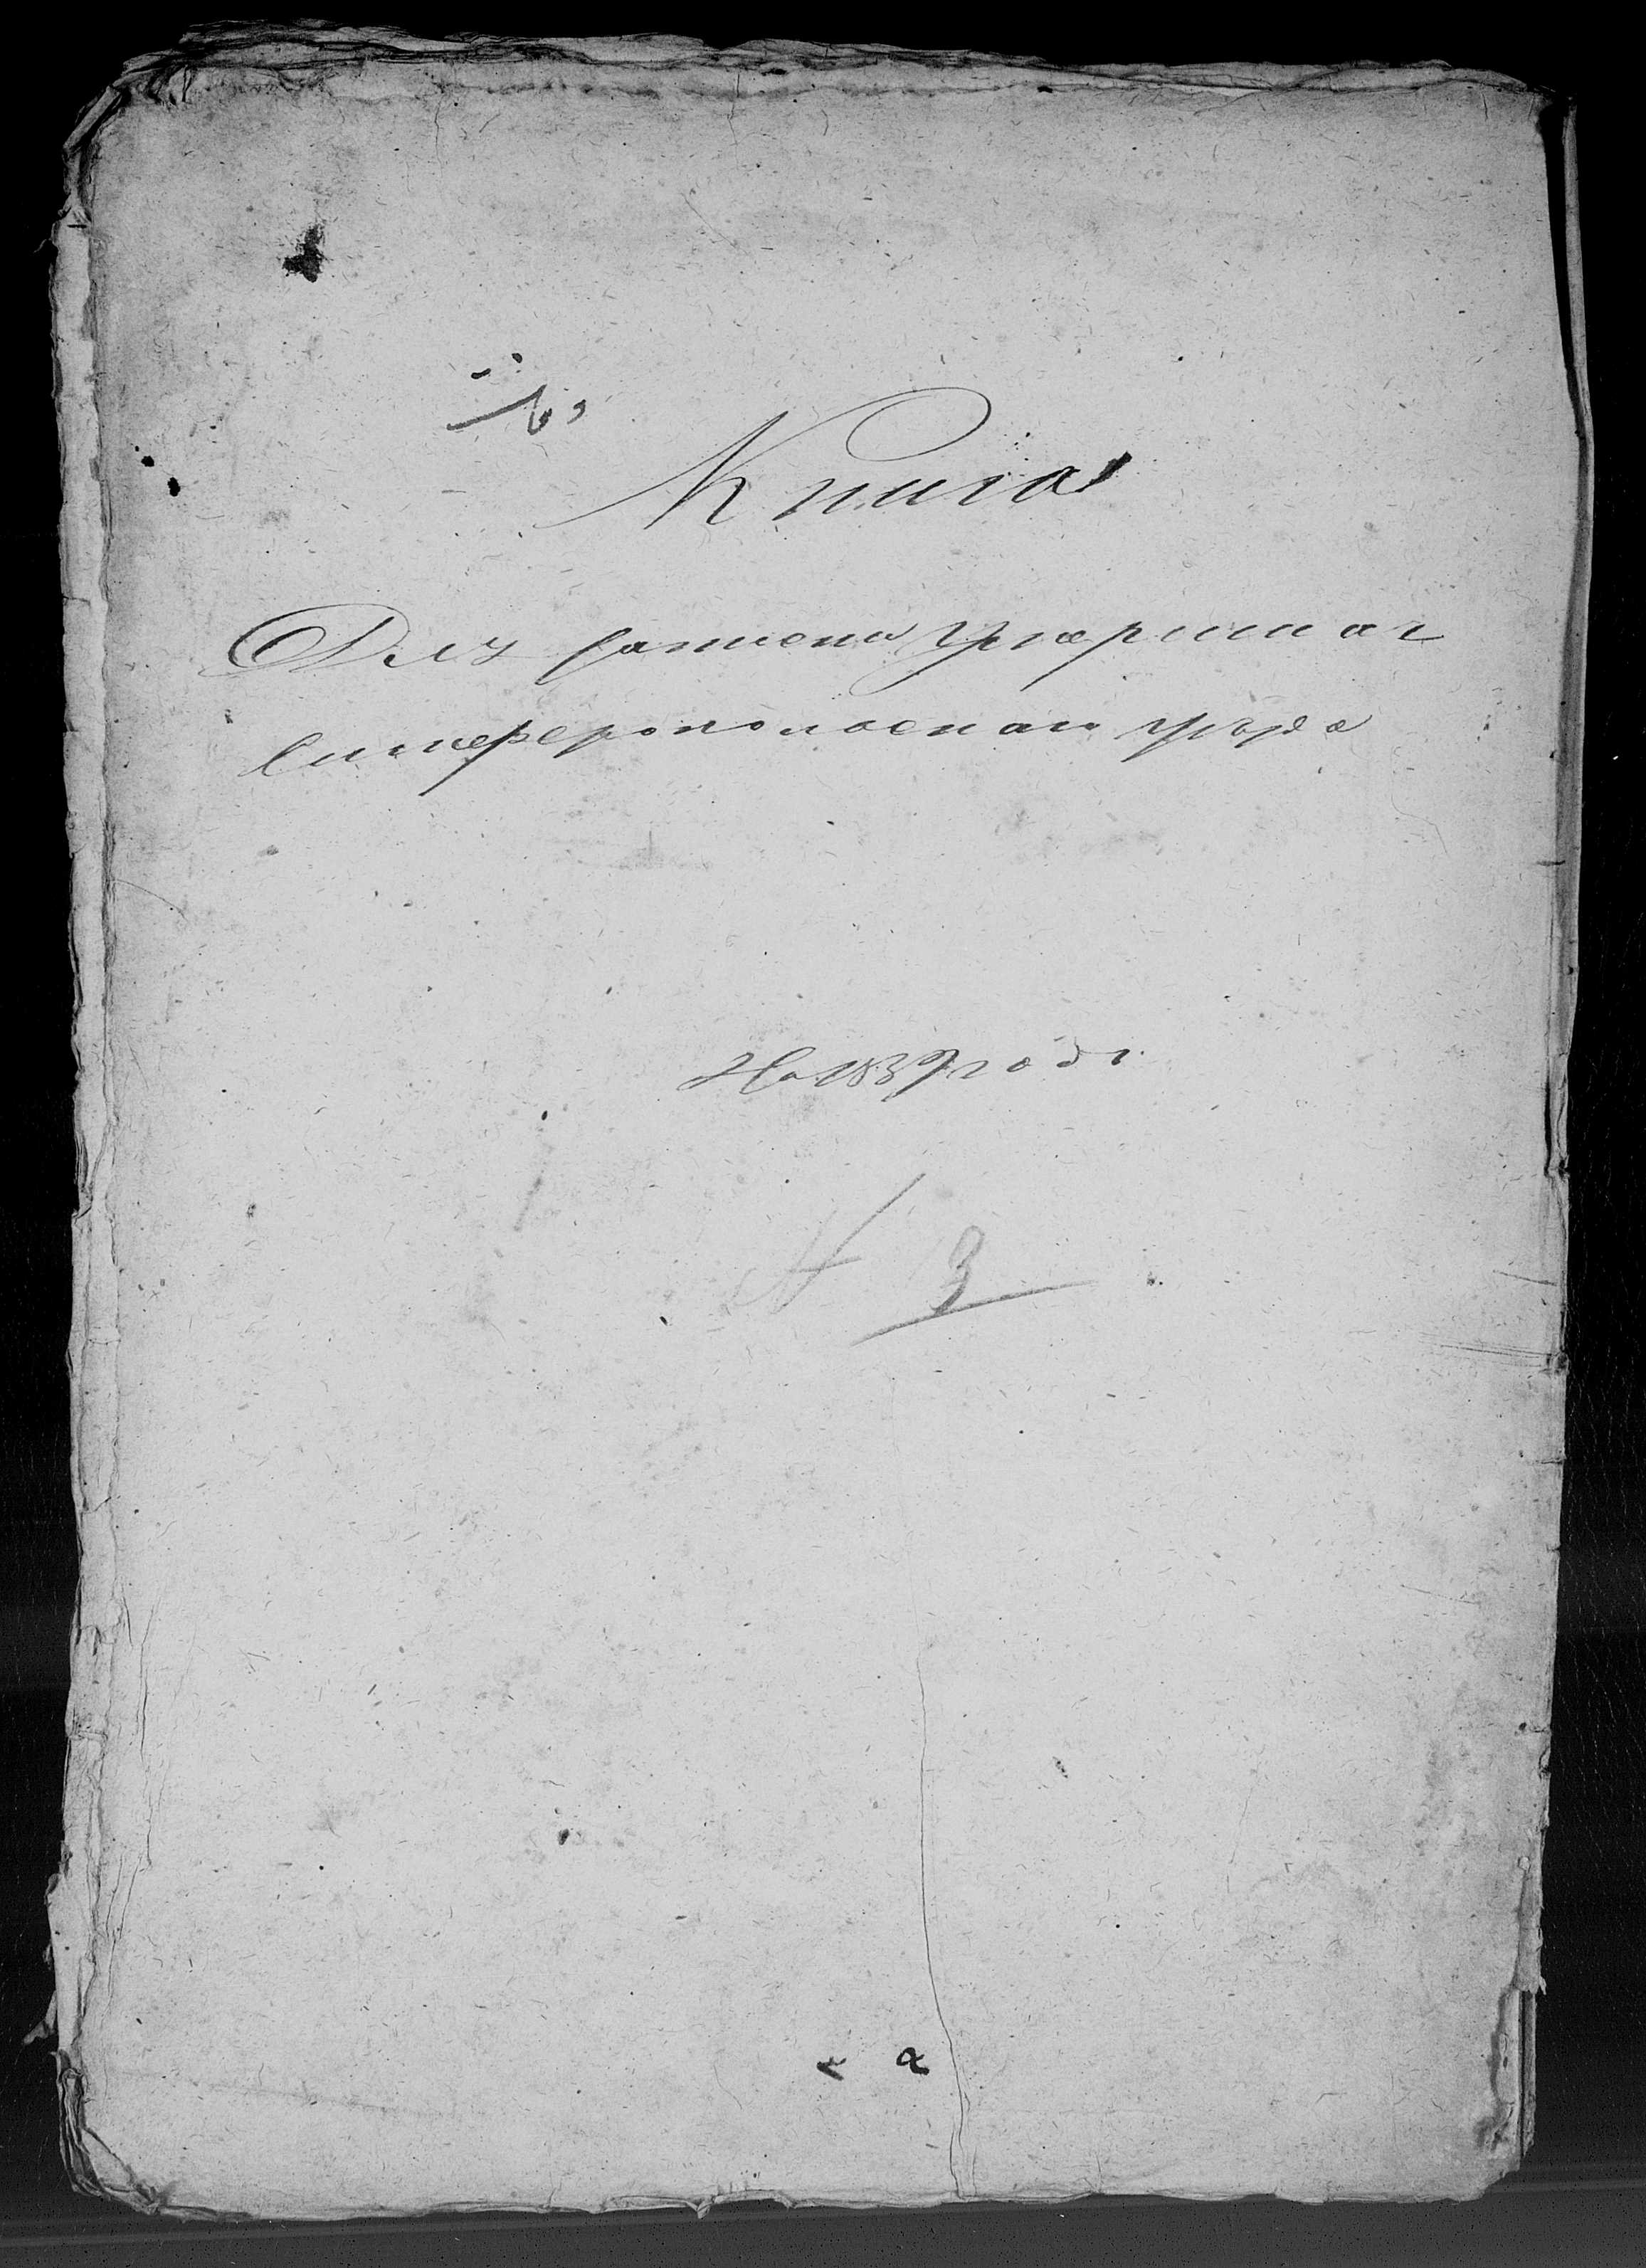 وفات
Книга
Для записки умершихъ
Симферопольскаго уѣзда
На 1839 годъ
№ 3